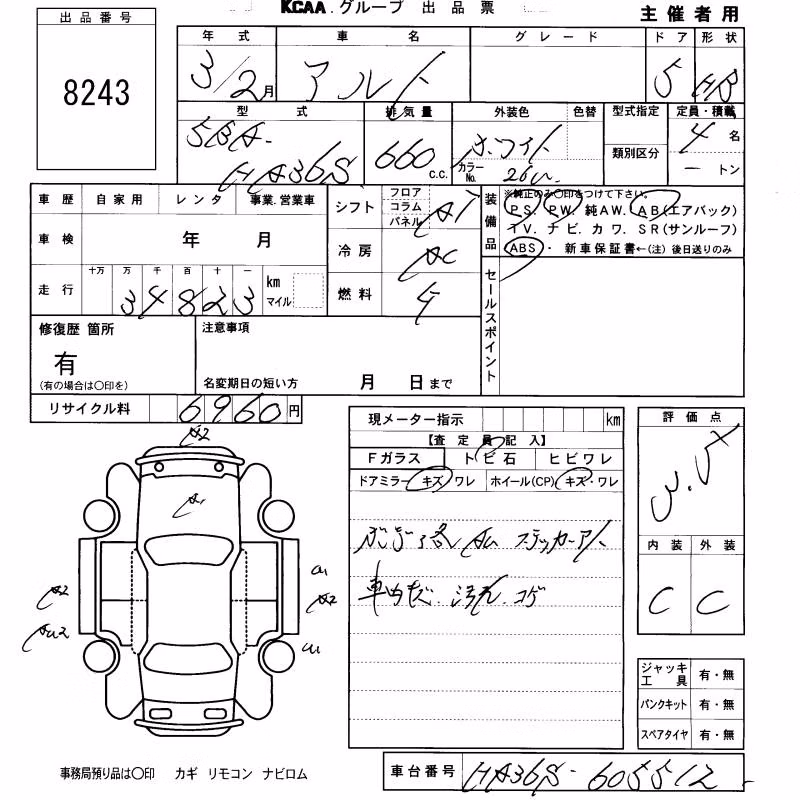 KCAA.グループ 出品票
主催者用
出品番号
8243
年式 車名 グレード ドア 形状
3/2月 アルト 5 HB
型式 排気量 外装色 色替 型式指定 定員・積載
5BA-
HA36S 660 c.c. ホワイト 4名
カラーNo. 26U 類別区分 ー トン
車歴 自家用 レンタ 事業.営業車
シフト フロア コラム パネル AT
装備品 ※純正のみ〇印をつけて下さい。
PS. PW. 純AW. AB(エアバック)
TV. ナビ. カワ. SR(サンルーフ)
ABS・ 新車保証書←(注) 後日送りのみ
車検 年 月
冷房 AC
走行 十万 万 千 百 十 一
34823 km マイル
燃料 ガ
セールスポイント
修復歴 箇所
有
(有の場合は〇印を)
注意事項
名変期日の短い方 月 日まで
リサイクル料 6960円
現メーター指示 km
【査定員記入】
Fガラス トビ石 ヒビワレ
ドアミラー キズ・ワレ ホイール(CP) キズ・ワレ
AU ステッカーアト
車内キズ.汚れ.コゲ
評価点
3.5
内装 外装
C C
A2
A1
A2
AU2
U1
A2
U1
ジャッキ工具 有・無
パンクキット 有・無
スペアタイヤ 有・無
事務局預り品は〇印 カギ リモコン ナビロム
車台番号 HA36S-605512